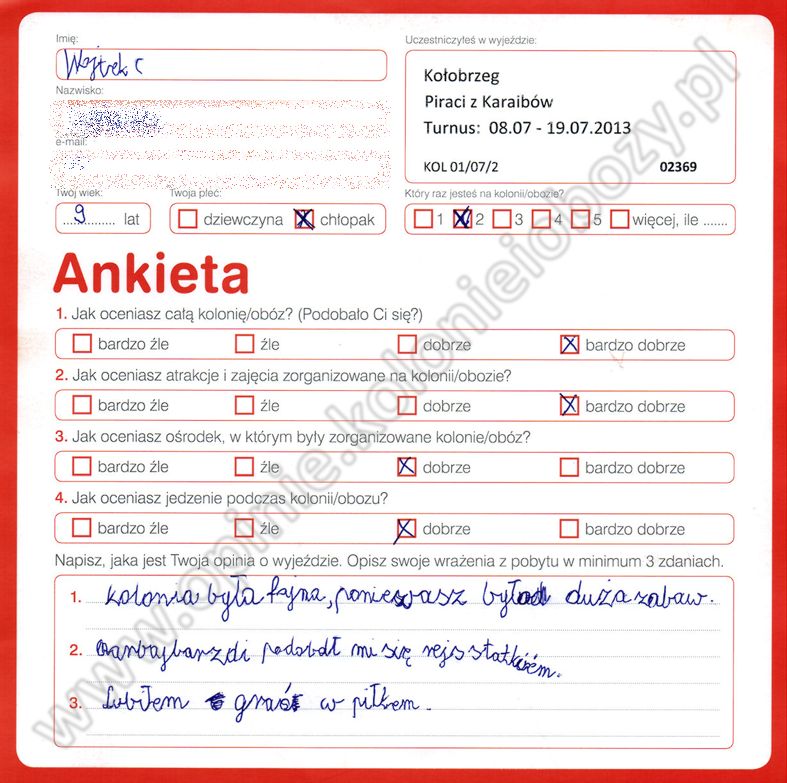 Imię:
Wojtek C
Uczestniczyłeś w wyjeździe:
Kołobrzeg
Piraci z Karaibów
Turnus: 08.07 - 19.07.2013
KOL 01/07/2 02369
Nazwisko:
e-mail:
Twój wiek:
9 lat
Twoja płeć:
dziewczyna chłopak
Który raz jesteś na kolonii/obozie?
1 2 3 4 5 więcej, ile .......
Ankieta
1. Jak oceniasz całą kolonię/obóz? (Podobało Ci się?)
bardzo źle źle dobrze bardzo dobrze
2. Jak oceniasz atrakcje i zajęcia zorganizowane na kolonii/obozie?
bardzo źle źle dobrze bardzo dobrze
3. Jak oceniasz ośrodek, w którym były zorganizowane kolonie/obóz?
bardzo źle źle dobrze bardzo dobrze
4. Jak oceniasz jedzenie podczas kolonii/obozu?
bardzo źle źle dobrze bardzo dobrze
Napisz, jaka jest Twoja opinia o wyjeździe. Opisz swoje wrażenia z pobytu w minimum 3 zdaniach.
1. kolonia była fajna, ponieważ było duża zabaw.
2. podobał mi się rejs statkiem.
3. Lubiłem grać w piłkem.
www.opinie.kolonieiobozy.pl